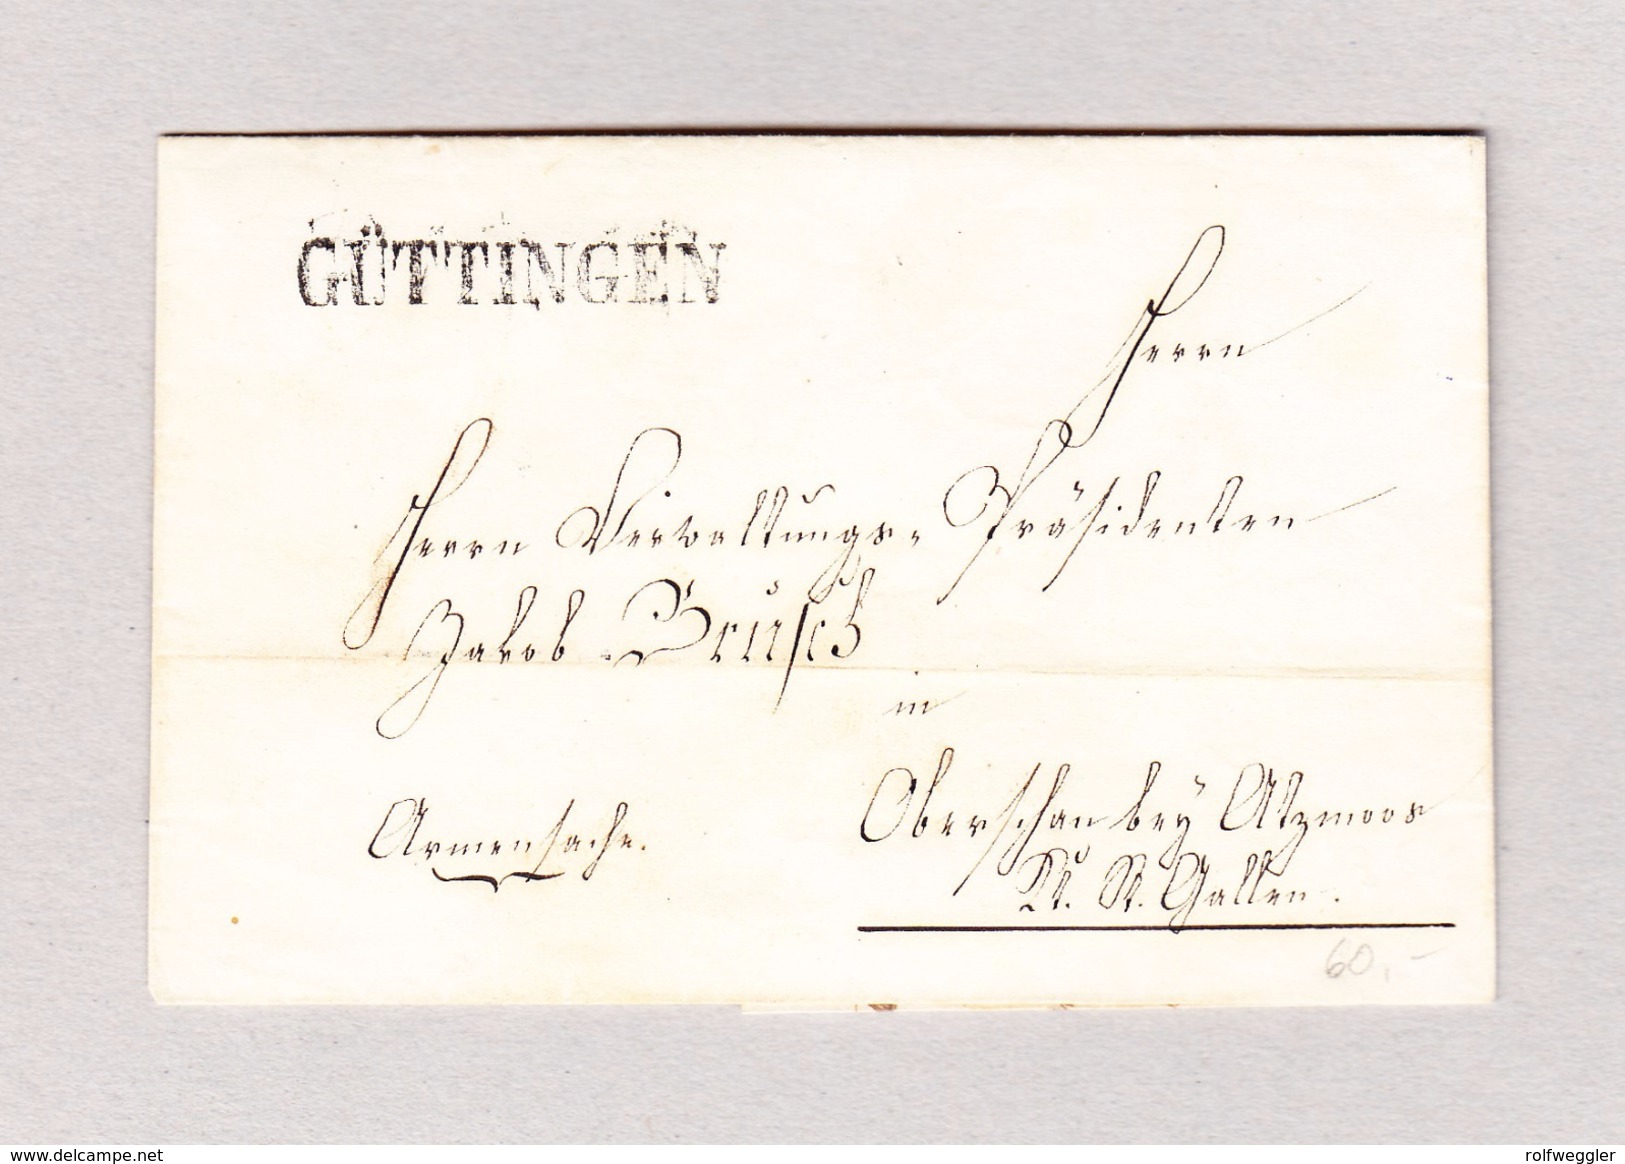 GÜTTINGEN
Herrn
Herrn Verwaltungs-Präsidenten
Jakob Brusch
in
Oberschan bey Atzmoos
Kt. St. Gallen.
Armensache.
60,-
www.delcampe.net
rolfweggler